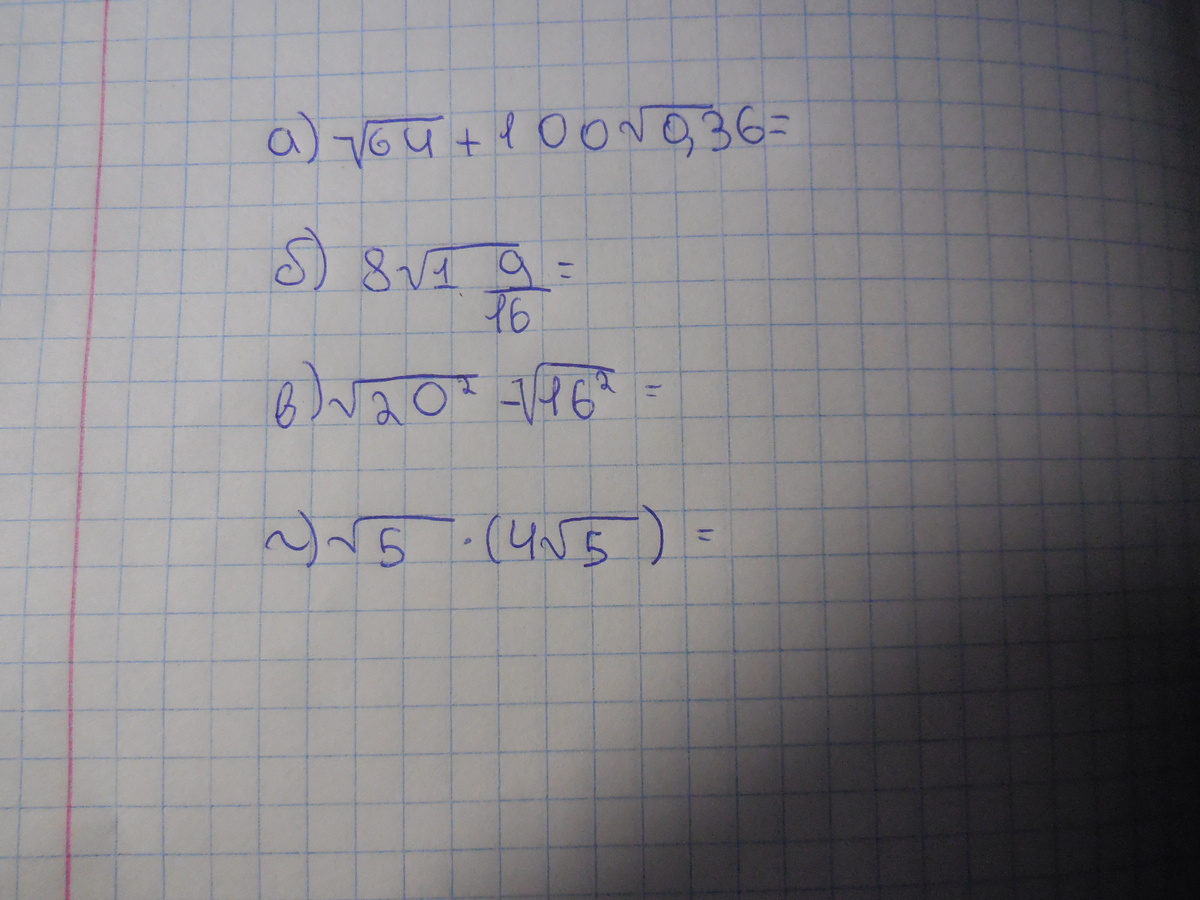 а) √64 + 100√0,36=
б) 8√1 9/16 =
в) √20² - √16² =
г) √5 · (4√5) =